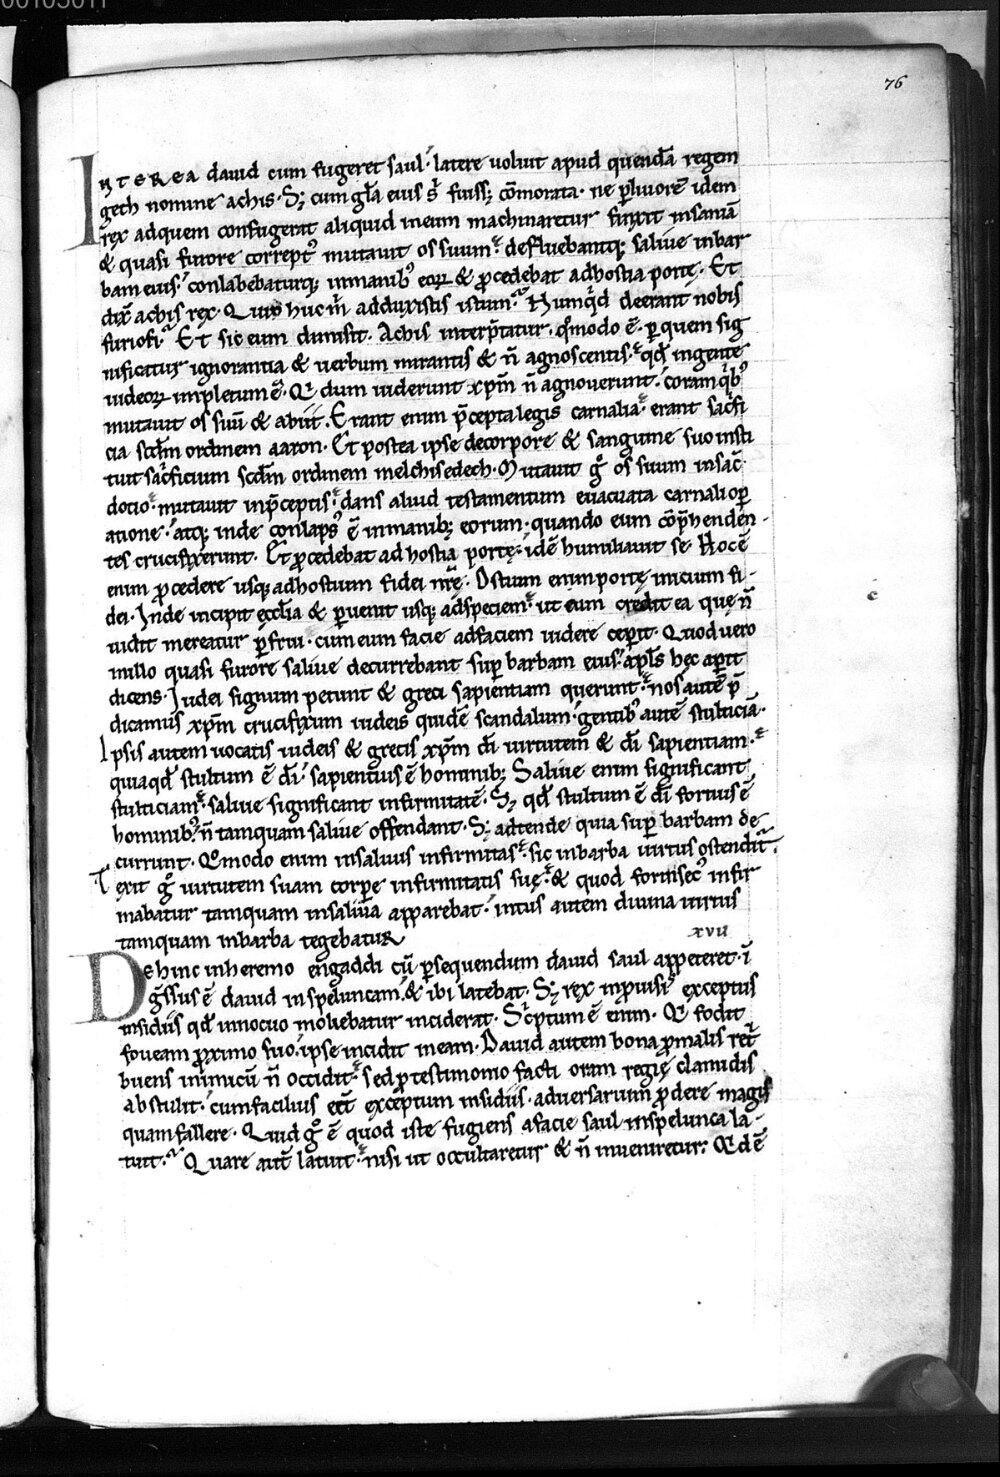 00103011
76
INTEREA dauid cum fugeret saul. latere uoluit apud quendā regem
geth nomine achis. S; cum gl̄a eius s̄ fuiss; cōmorata. ne p̱ liuorē idem
rex adquem confugerat aliquid ineum machinaretur finxit insaniā
& quasi furore corrept᷒ mutauit os suum. defluebantq; saliue inbar
bam eius. conlabebaturq; inmanib᷒ eoꝝ & ꝓcedebat adhostia portę. Et
dix̄ achis rex. Quid huc m̄ adduxistis istum. Numq̄d deerant nobis
furiosi. Et sic eum dimisit. Achis interp̄tatur. qͦmodo ē. p̱ quem sig
nificatur ignorantia & uerbum mirantis & n̄ agnoscentis. qd̄ ingente
uideoꝝ impletum ē. Qͥ dum uiderunt xp̄m n̄ agnouerunt. coram qͥb᷒
mutauit os suū & abiit. Erant enim p̄cepta legis carnalia. erant sac̄fi
cia scd̄m ordinem aaron. Et postea ipse decorpore & sanguine suo insti
tuit sac̄ficium scd̄m ordinem melchisedech. Mutauit gͦ os suum insac̄
docio. mutauit inp̄ceptis. dans aliud testamentum euacuata carnali op̱
atione. atq; inde conlaps᷒ ē inmanib; eorum. quando eum cōp̄henden-
tes crucifixerunt. Et ꝓcedebat ad hostia portę. idē humiliauit se. Hoc ē
enim ꝓcedere usq; adhostium fidei nr̄ę. Ostium enim portę inicium fi-
dei. Inde incipit eccl̄ia & p̱uenit usq; adspeciem. ut cum credit ea quę n̄
uidit mereatur p̱frui. cum eum facie adfaciem uidere cep̱it. Quod uero
inillo quasi furore saliue decurrebant sup̱ barbam eius. apl̄s hęc ap̱it
dicens. Iudei signum petunt & greci sapientiam querunt. nos autē p̄
dicamus xp̄m crucifixum iudeis quidē scandalum. gentib᷒ autē stulticiā.
Ipsis autem uocatis iudeis & grecis xp̄m dī uirtutem & dī sapientiam.
quia qd̄ stultum ē dī. sapientius ē hominib; Saliue enim significant
stulticiam. saliue significant infirmitatē. S; qd̄ stultum ē dī fortius ē
hominib᷒. n̄ tamquam saliue offendant. S; adtende quia sup̱ barbam de-
currunt. Qͦmodo enim insaliuis infirmitas. sic inbarba uirtus ostendit᷑.
Texit gͦ uirtutem suam corp̱e infirmitatis suę. & quod forinsec᷒ infir
mabatur tamquam insaliua apparebat. intus autem diuina uirtus
tamquam inbarba tegebatur
xvii
Dehinc inheremo engaddi cū p̱sequendum dauid saul appeteret. ī
gs̄sus ē dauid inspeluncam. & ibi latebat. S; rex inprouisis exceptus
insidiis qd̄ innocuo moliebatur inciderat. Sc̄ptum ē enim. Qͥ fodit
foueam proximo suo. ipse incidit ineam. Dauid autem bona ꝓ malis ret̄
buens inimicū n̄ occidit. sed ꝓ testimonio facti oram regię clamidis
abstulit. cum facilius eēt exceptum insidiis. aduersarium ꝓdere magis
quam fallere. Quid gͦ ē quod iste fugiens afacie saul inspelunca la-
tuit. Quare aut̄ latuit. nisi ut occultaretur & n̄ inueniretur. Qͥd ē